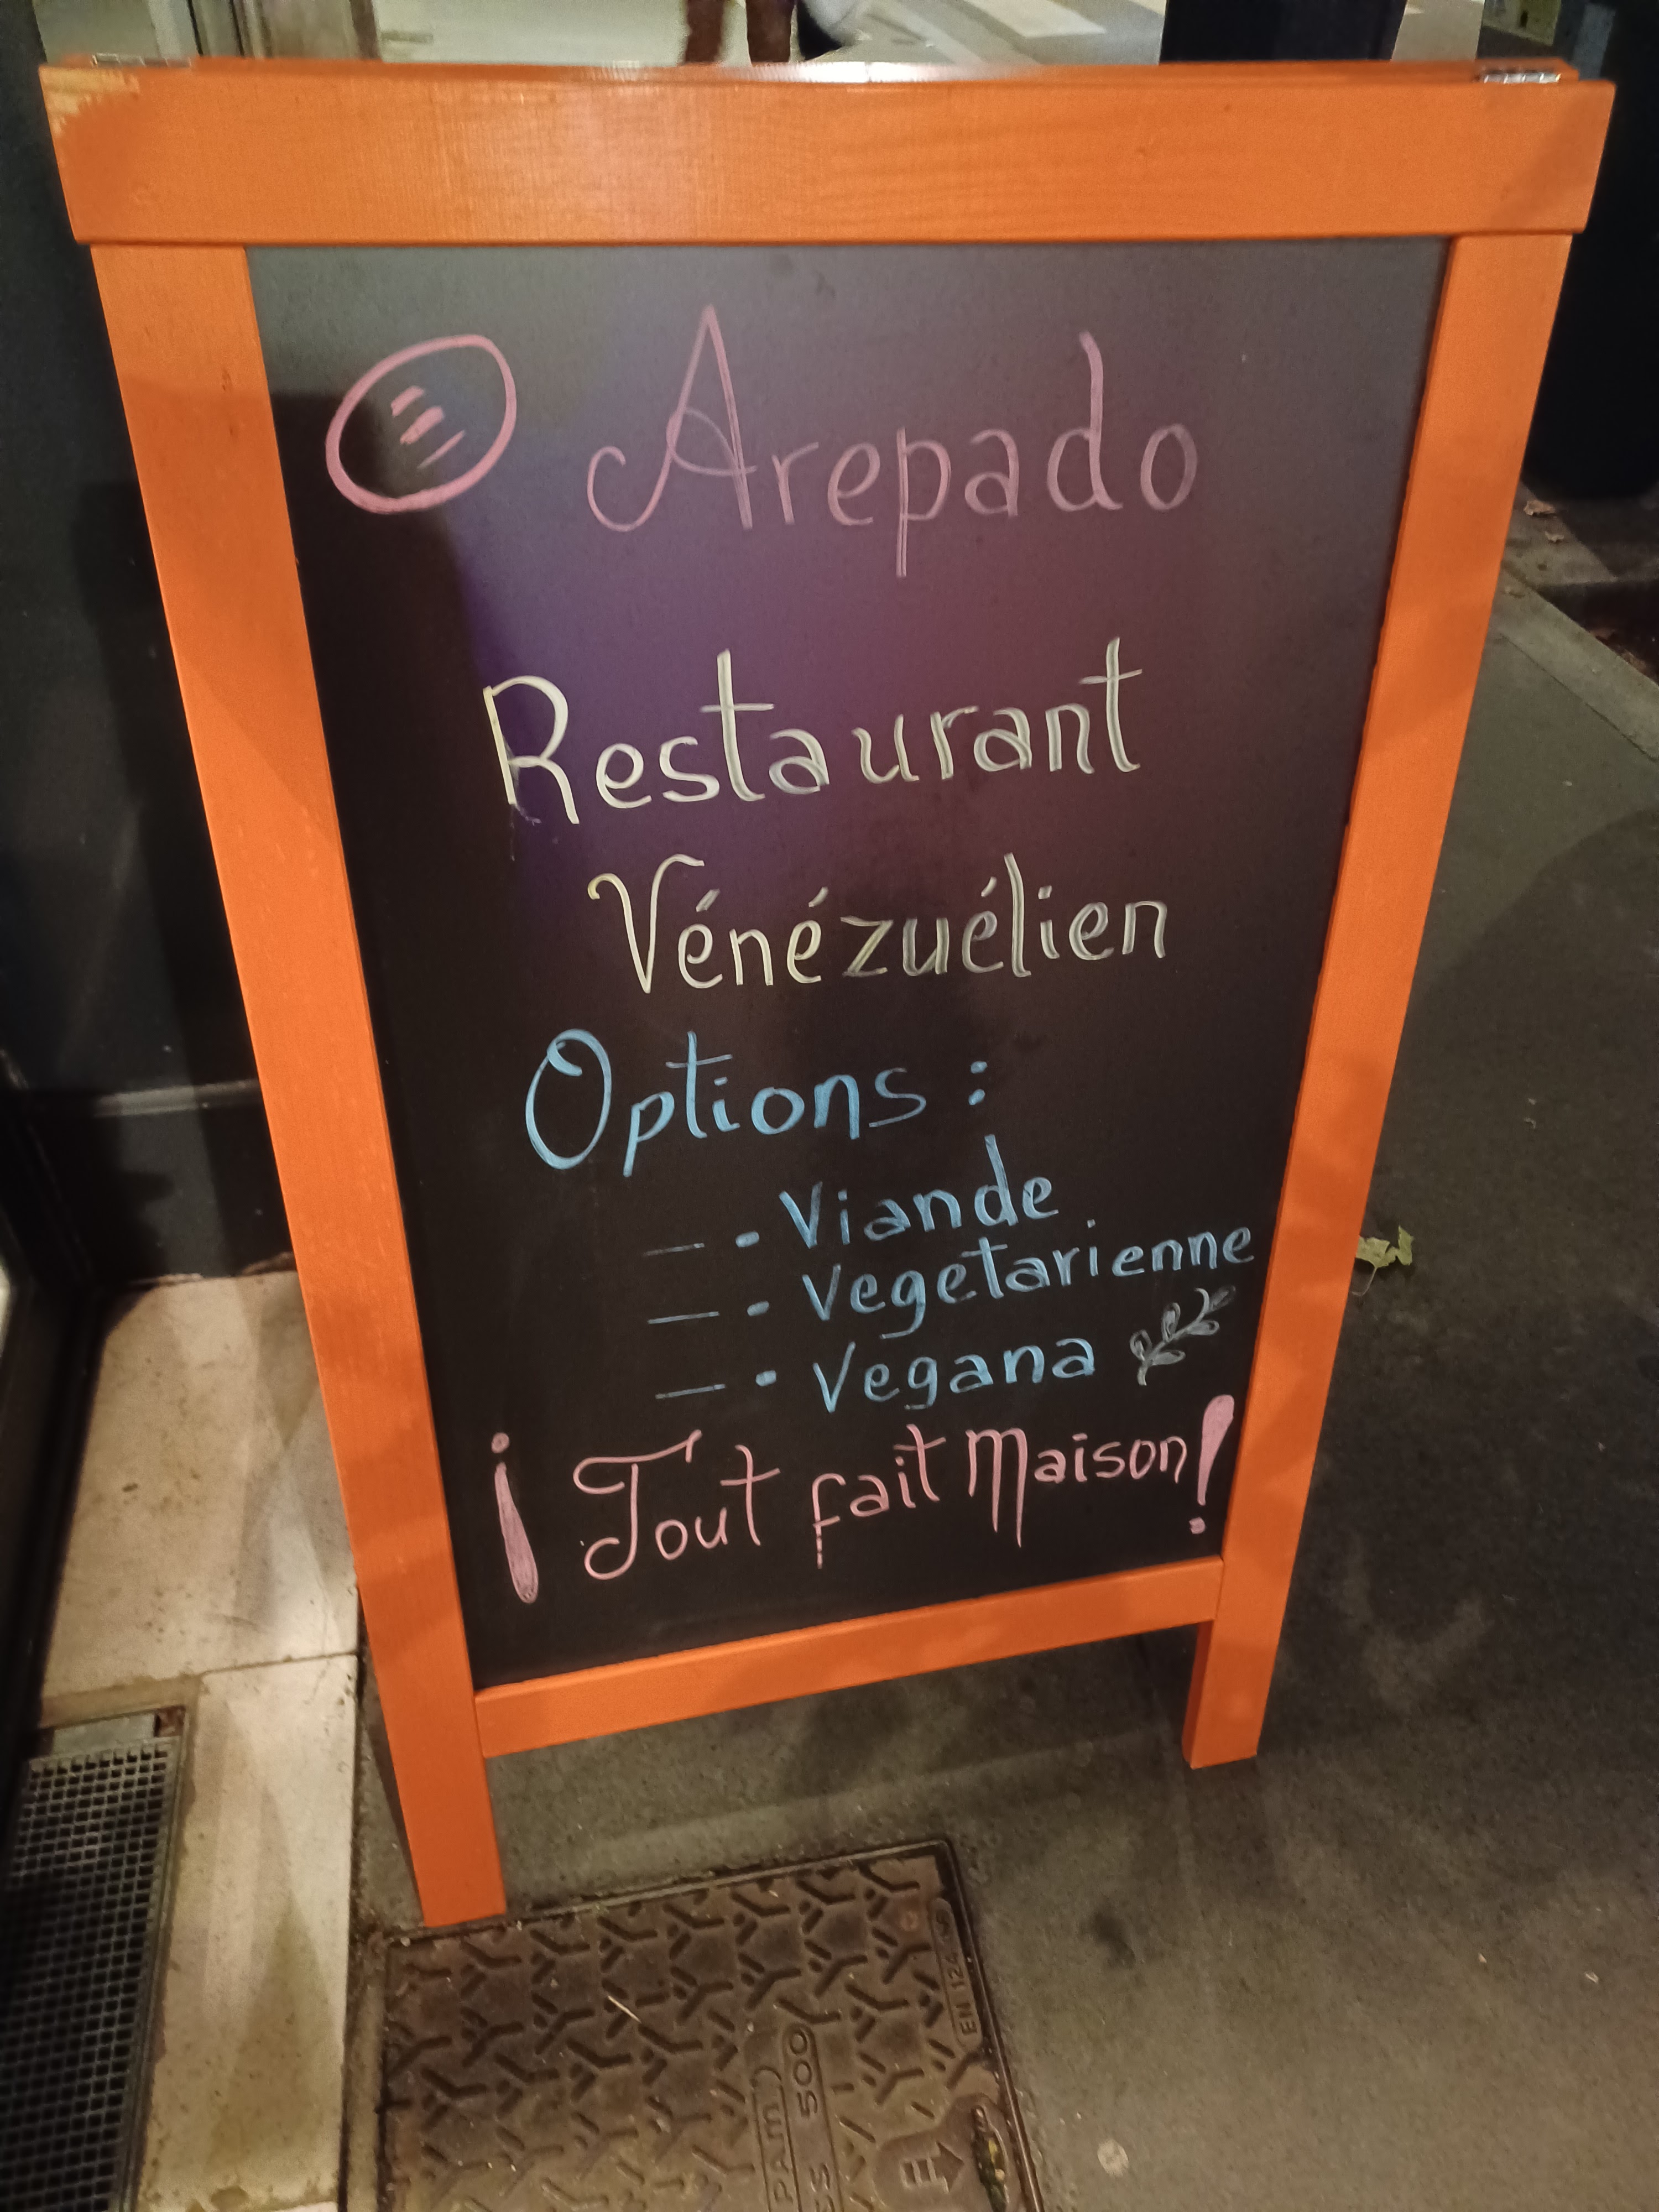 Arepado
Restaurant
Vénézuélien
Options :
- • Viande
- • Vegetarienne
- • Vegana
¡ Tout fait Maison !
PAM
500
EN 124